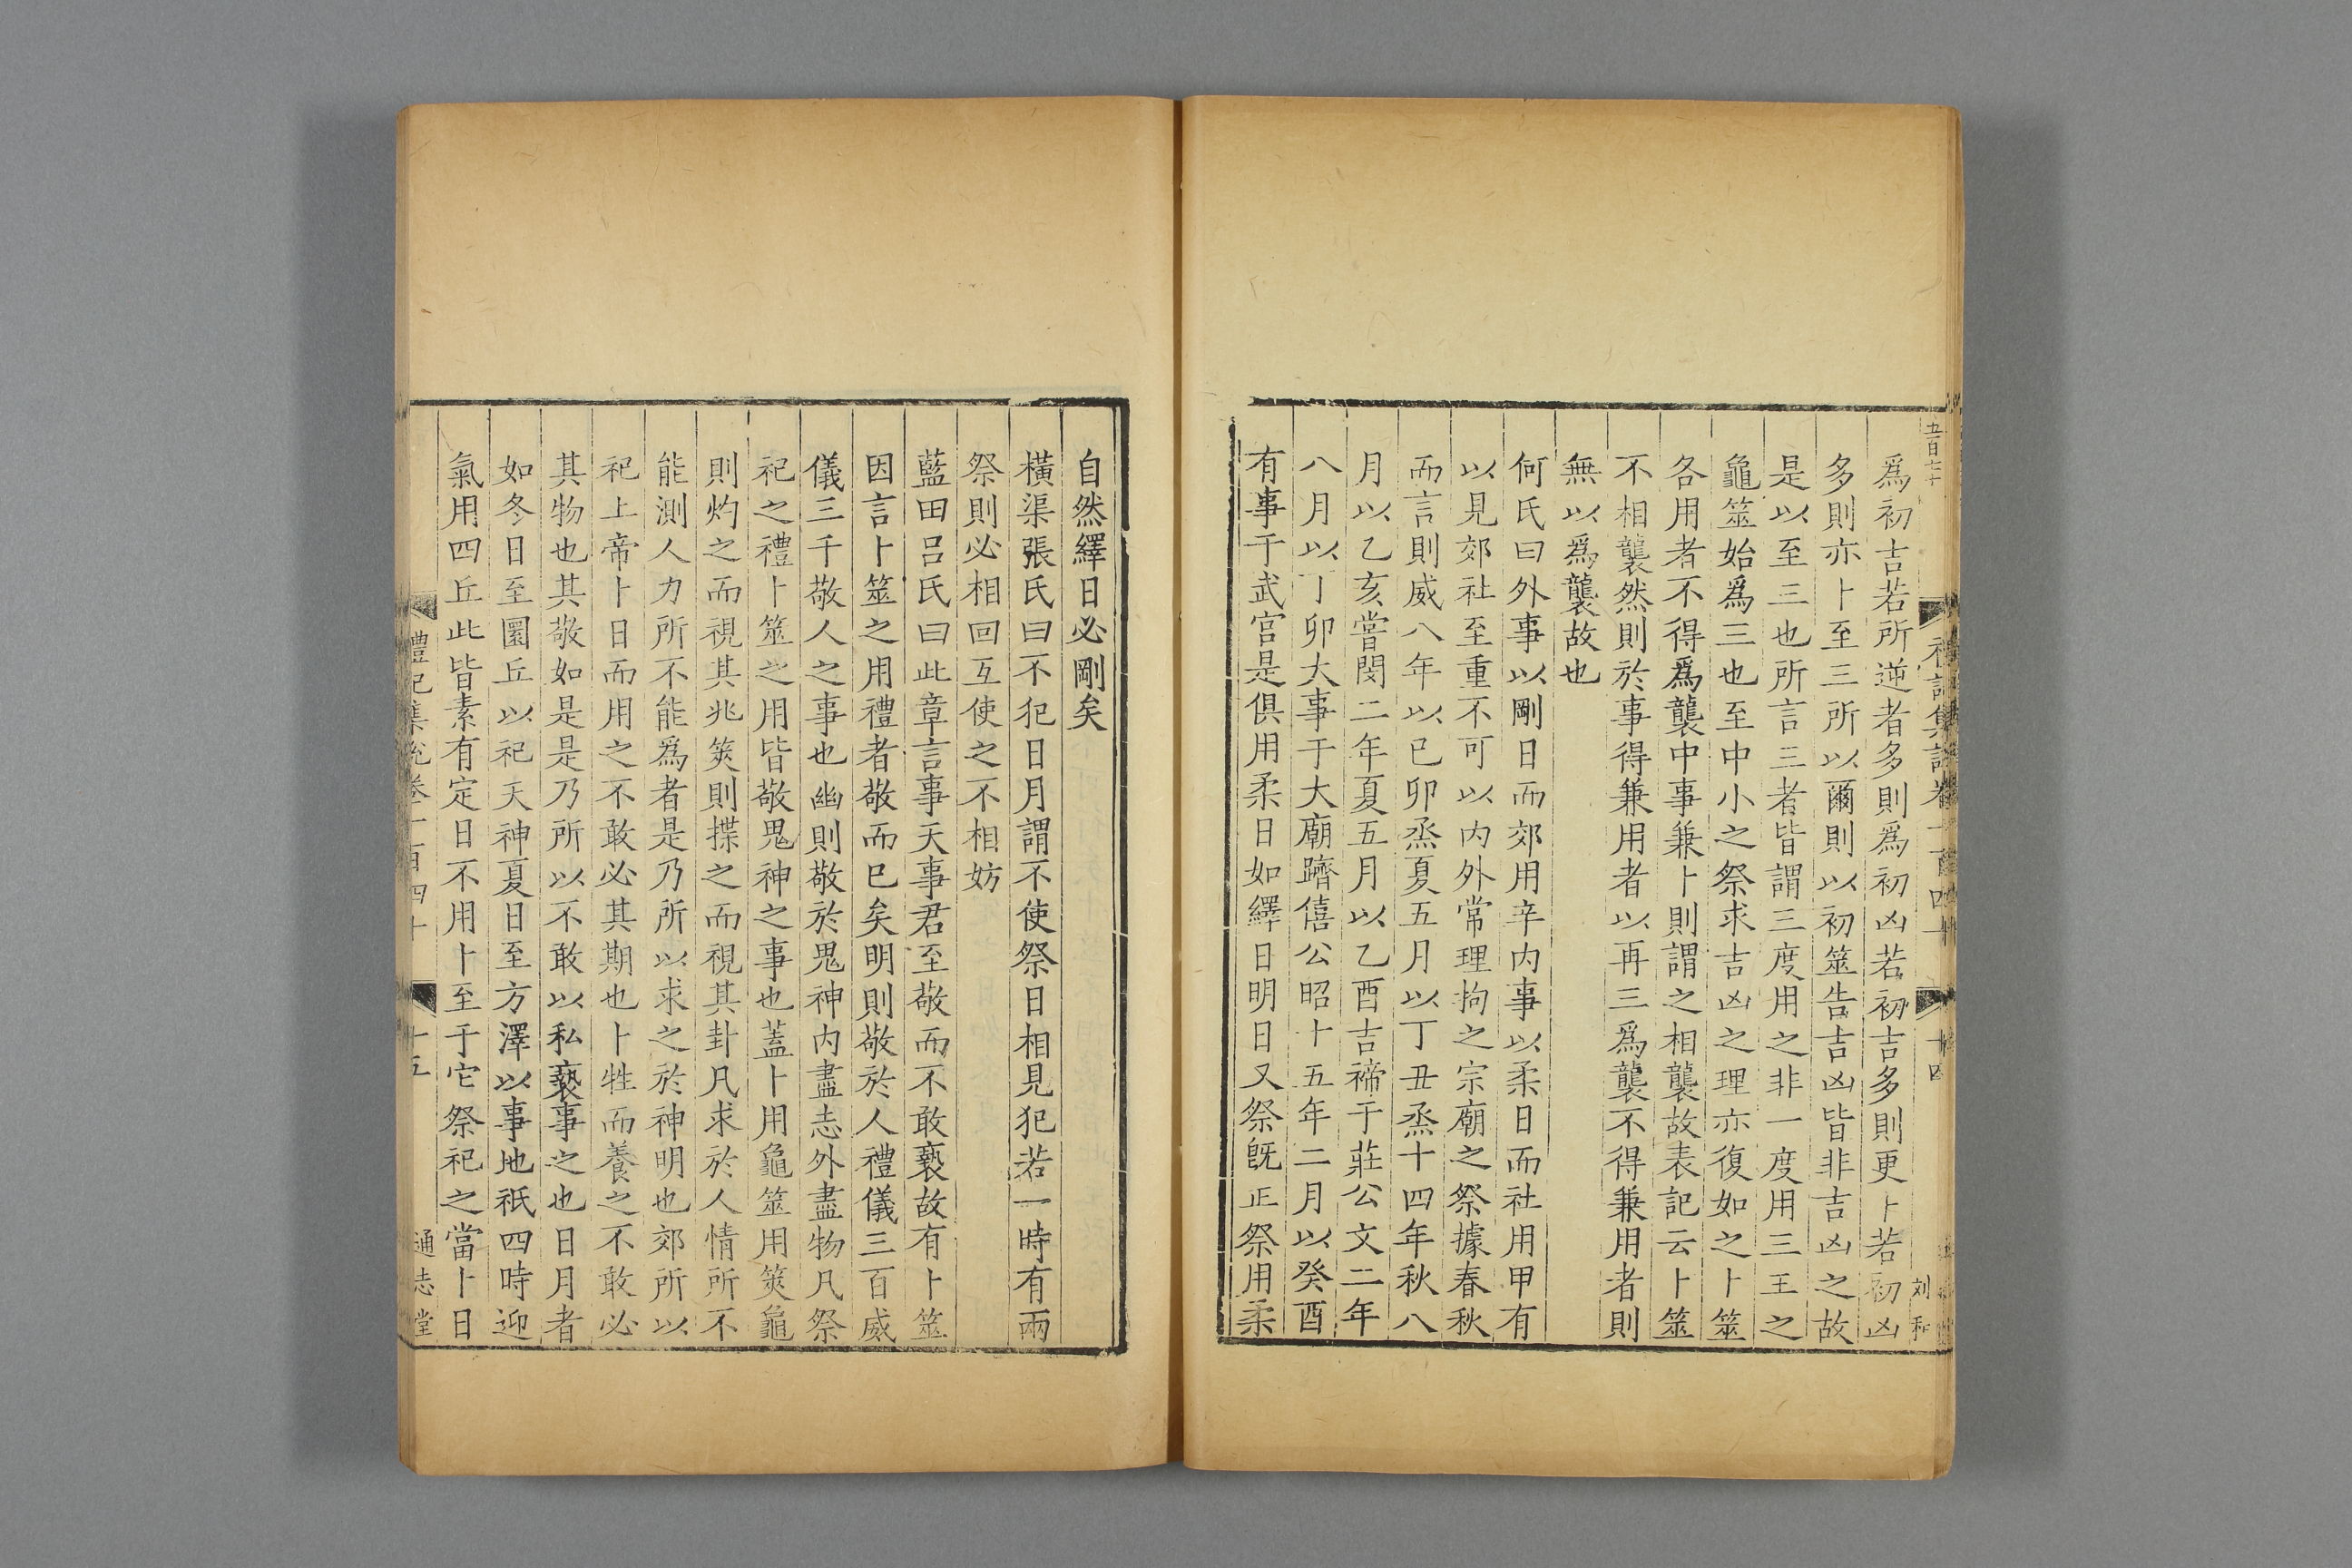 五百七十
禮記集說卷一百四十
十四
刘和
爲初吉若所逆者多則爲初凶若初吉多則更卜若初凶
多則亦卜至三所以爾則以初筮告吉凶皆非吉凶之故
是以至三也所言三者皆謂三度用之非一度用三王之
龜筮始爲三也至中小之祭求吉凶之理亦復如之卜筮
各用者不得爲襲中事兼卜則謂之相襲故表記云卜筮
不相襲然則於事得兼用者以再三爲襲不得兼用者則
無以爲襲故也
何氏曰外事以剛日而郊用辛内事以柔日而社用甲有
以見郊社至重不可以内外常理拘之宗廟之祭據春秋
而言則威八年以已卯烝夏五月以丁丑烝十四年秋八
月以乙亥嘗閔二年夏五月以乙酉吉禘于莊公文二年
八月以丁卯大事于大廟躋僖公昭十五年二月以癸酉
有事于武宫是俱用柔日如繹日明日又祭旣正祭用柔
自然繹日必剛矣
橫渠張氏曰不犯日月謂不使祭日相見犯若一時有兩
祭則必相回互使之不相妨
藍田吕氏曰此章言事天事君至敬而不敢褻故有卜筮
因言卜筮之用禮者敬而已矣明則敬於人禮儀三百威
儀三千敬人之事也幽則敬於鬼神内盡志外盡物凡祭
祀之禮卜筮之用皆敬鬼神之事也蓋卜用龜筮用筴龜
則灼之而視其兆筴則揲之而視其卦凡求於人情所不
能測人力所不能爲者是乃所以求之於神明也郊所以
祀上帝卜日而用之不敢必其期也卜牲而養之不敢必
其物也其敬如是是乃所以不敢以私褻事之也日月者
如冬日至圜丘以祀天神夏日至方澤以事地祇四時迎
氣用四丘此皆素有定日不用卜至于它祭祀之當卜日
禮記集說卷一百四十
十五
通志堂